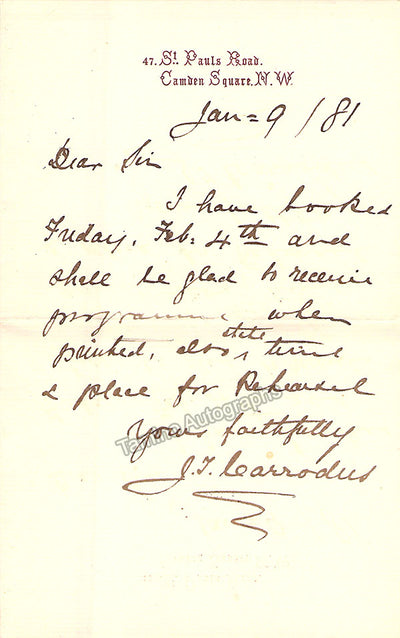 47. St. Pauls Road.
Camden Square. N. W.
Jan = 9 / 81
Dear Sir
I have booked
Friday, Feb: 4th and
shall be glad to receive
programme when
state
printed, also, time
& place for Rehearsal
Yours faithfully
Tamino Autographs
J. T. Carrodus